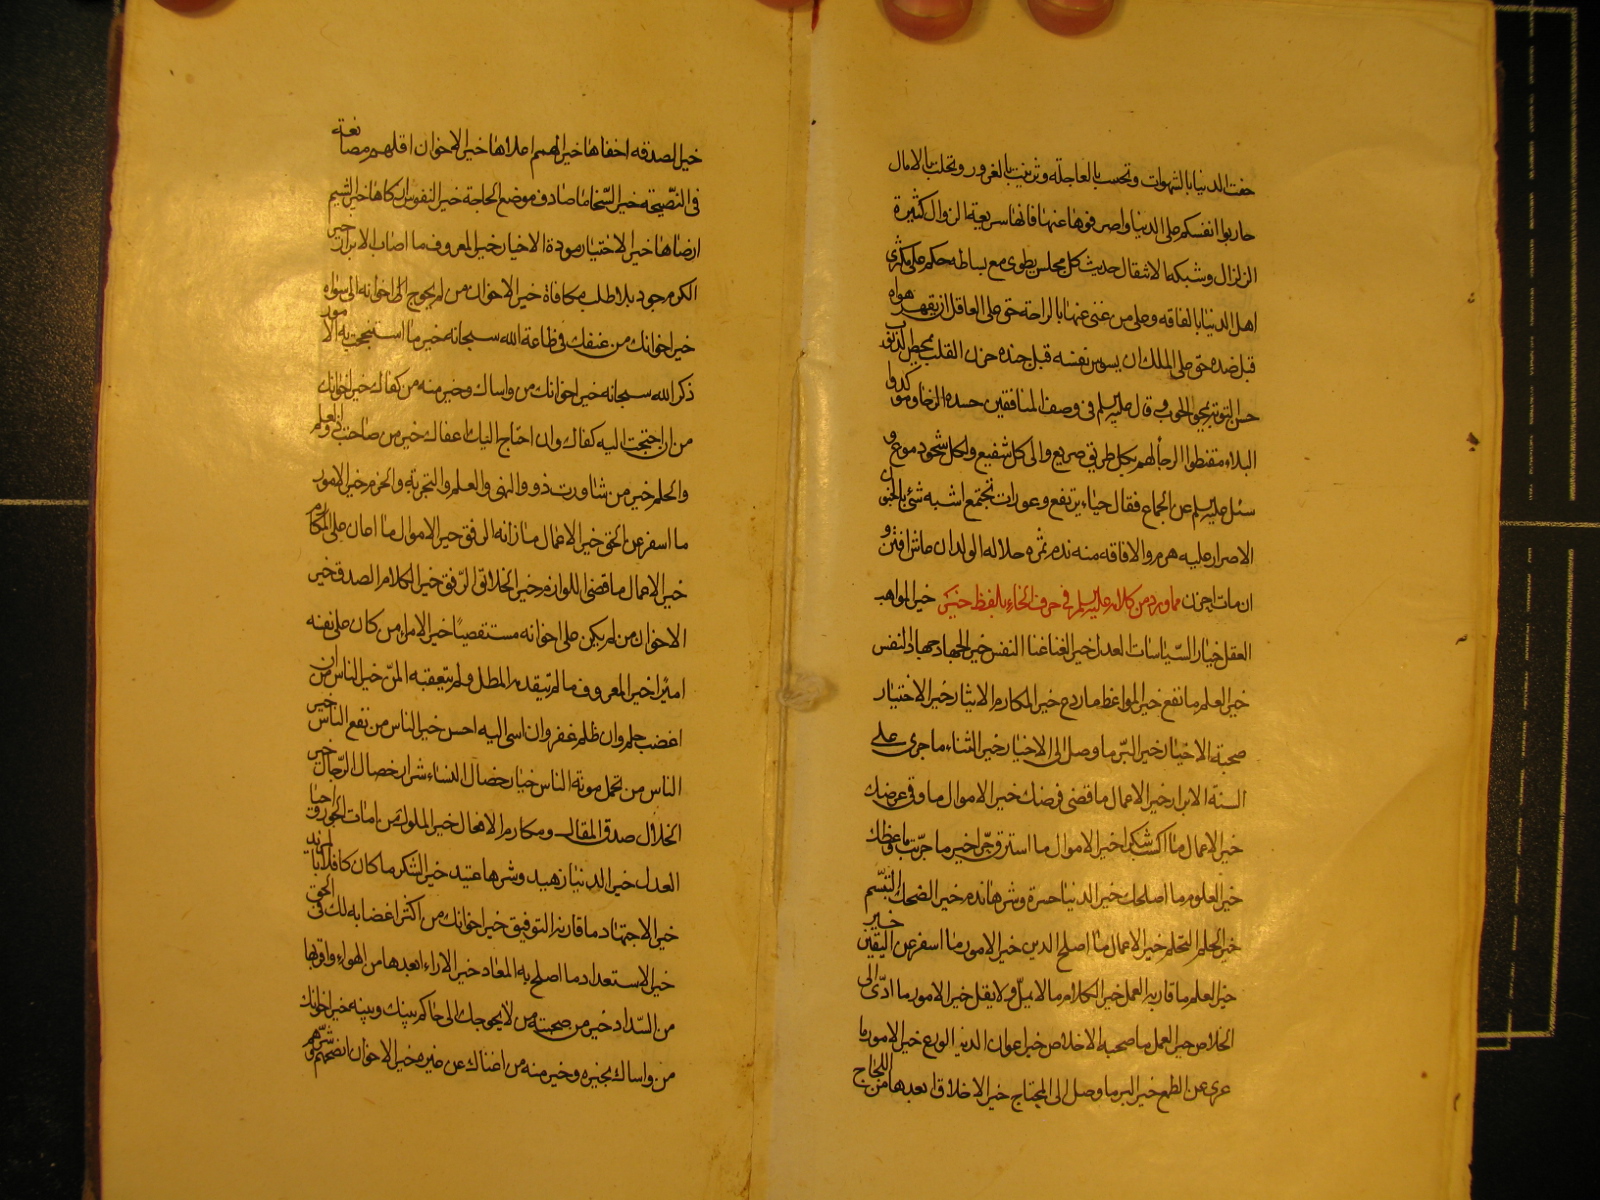 حفت الدنيا بالشهوات وتحببت بالعاجلة وتزينت بالغرور وتحلت بالامال
حاربوا انفسكم على الدنيا واصرفوها عنها فانها سريعة الزوال كثيرة
الزلزال وشيكة الانتقال حديث كل مجلس يطوى مع بساطه حكم على مكثرى
اهل الدنيا بالفاقه وعلى من غنى عنها بالراحة حق على العاقل ان يقهر هواه
قبل ضده حق على الملك ان يسوس نفسه قبل جنده حزن القلب يمحص الذنوب
حسن التوبة يمحو الحوب وقال عليه السلم فى وصف المنافقين حسدة الرخاء ومؤكدوا
البلاء مقنطوا الرجا لهم بكل طريق صريع والى كل شفيع ولكل شجو دموع و
سئل عليه السلم عن الجماع فقال حياء يرتفع وعورات تجتمع اشبه شئ بالجنون
الاصرار عليه هرم والافاقه منه ندم ثمرة حلاله الولد ان عاش افتن و
ان مات احزن مما ورد من كلامه عليه السلم فى حرف الخاء بلفظ خير خير المواهب
العقل خيار السياسات العدل خير الغنا غنا النفس خير الجهاد جهاد النفس
خير العلم ما نفع خير المواعظ ما ردع خير المكارم الايثار خير الاختيار
صحبة الاخيار خير البر ما وصل الى الاخيار خير الثناء ما جرى على
السنة الابرار خير الاعمال ما قضى فرضك خير الاموال ما وقى عرضك
خير الاعمال ما اكسب شكرا خير الاموال ما استرق حرا خير ما جربت ما وعظك
خير العلوم ما اصلحك خير الدنيا حسرة وشرها ندم خير الضحك التبسم
خير الحلم التحلم خير الاعمال ما اصلح الدين خير الامور ما اسفر عن اليقين خير
خير العلم ما قارنه العمل خير الكلام ما لا يمل ولا يقل خير الامور ما ادى الى
الخلاص خير العمل ما صحبه الاخلاص خير اعوان الدين الورع خير الامور ما
عرى عن الطمع خير البر ما وصل الى المحتاج خير الاخلاق ابعدها من اللجاج
خير الصدقه اخفاها خير الهمم اعلاها خير الاخوان اقلهم مصانعة
فى النصيحة خير السخا ما صادف موضع الحاجة خير النفوس ازكاها خير الشيم
ارضاها خير الاختيار مودة الاخيار خير المعروف ما اصاب الابرار خير
الكرم جود بلا طلب مكافاة خير الاخوان من لم يحوج اخوانه الى سواه
خير اخوانك من عنفك فى طاعة الله سبحانه خير ما استنجحت به الامور
ذكر الله سبحانه خير اخوانك من واساك وخير منه من كفاك خير اخوانك
من ان احتجت اليه كفاك وان احتاج اليك اعفاك خير من صاحبت ذو العلم
والحلم خير من شاورت ذوو النهى والعلم والتجربة والحزم خير الامور
ما اسفر عن الحق خير الاعمال ما زانه الرفق خير الاموال ما اعان على المكارم
خير الاعمال ما قضى اللوازم خير الخلائق الرفق خير الكلام الصدق خير
الاخوان من لم يكن على اخوانه مستقصيا خير الامراء من كان على نفسه
اميرا خير المعروف ما لم يتقدمه المطل ولم يتعقبه المن خير الناس من ان
اغضب حلم وان ظلم غفر وان اسى اليه احسن خير الناس من نفع الناس خير
الناس من تحمل مونة الناس خيار خصال النساء شرار خصال الرجال خير
الخلال صدق المقال ومكارم الافعال خير الملوك من امات الجور واحيا
العدل خير الدنيا زهيد وشرها عتيد خير الشكر ما كان كافلا بالمزيد
خير الاجتهاد ما قارنه التوفيق خير اخوانك من اكثر اغضابه لك فى الحق
خير الاستعداد ما اصلح به المعاد خير الاراء ابعدها من الهواء واقربها
من السداد خير من صحبته من لا يحوجك الى حاكم بينك وبينه خير اخوانك
من واساك بخيره وخير منه من اغناك عن غيره خير الاخوان انصحهم وشرهم